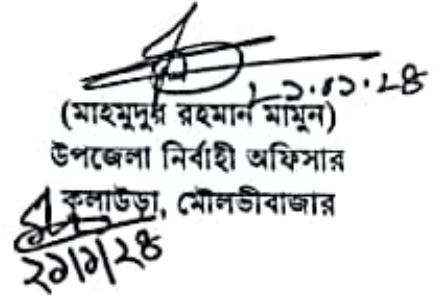 ২১.০১.২৪
(মাহমুদুর রহমান মামুন)
উপজেলা নির্বাহী অফিসার
কুলাউড়া, মৌলভীবাজার
২১/১/২৪